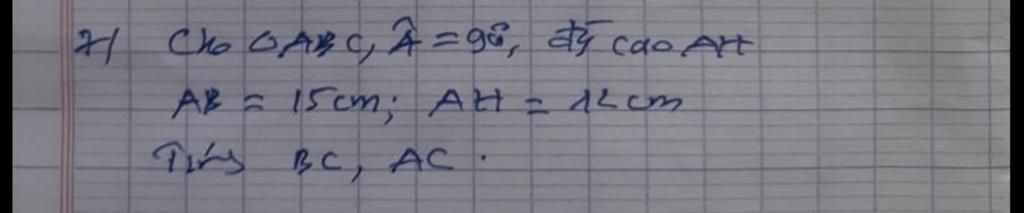 7/ Cho △ABC, Â = 90°, đg cao AH
AB = 15cm; AH = 12cm
Tính BC, AC.